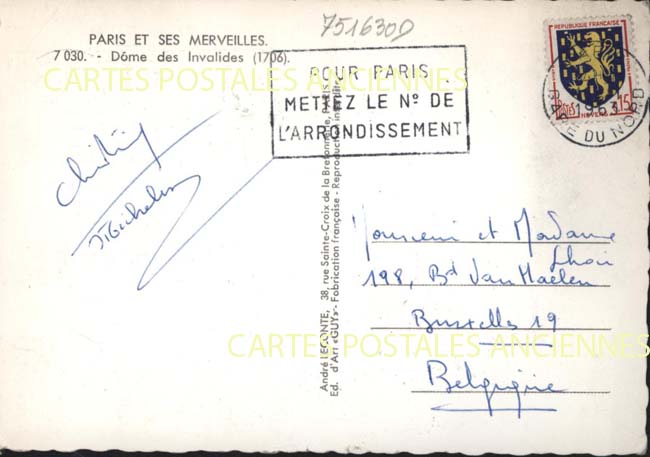 7516300
PARIS ET SES MERVEILLES.
7 030. - Dôme des Invalides (1706).
CARTES POSTALES ANCIENNES
POUR PARIS
METTEZ LE Nº DE
L'ARRONDISSEMENT
REPUBLIQUE FRANÇAISE
POSTES
15
NEVERS
1963
GARE DU NORD
André LECONTE, 38, rue Sainte-Croix de la Bretonnerie, PARIS
Ed. d'Art «GUY» - Fabrication française - Reproduction interdite
Monsieur et Madame
198, Bd Van Haelen
Bruxelles 19
Belgique
CARTES POSTALES ANCIENNES